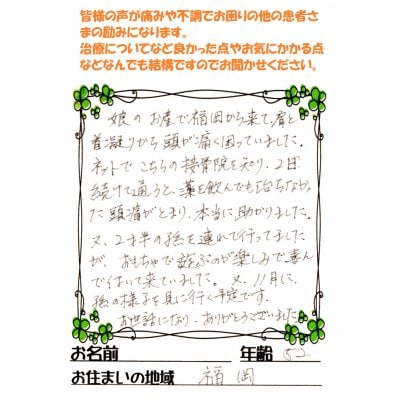 皆様の声が痛みや不調でお困りの他の患者さ
まの励みになります。
治療についてなど良かった点やお気にかかる点
などなんでも結構ですのでお聞かせください。
娘のお産で福岡から来て、肩と
首凝りから頭が痛く困っていました。
ネットでこちらの接骨院を知り、2日
続けて通うと、薬を飲んでも治らなかっ
た頭痛がとまり、本当に助かりました。
又、2才半の孫を連れて行ってました
が、おもちゃで遊ぶのが楽しみで喜ん
で付いて来ていました。又、11月に、
孫の様子を見に行く予定です。
お世話になり、ありがとうございました
お名前
年齢 52
お住まいの地域 福岡